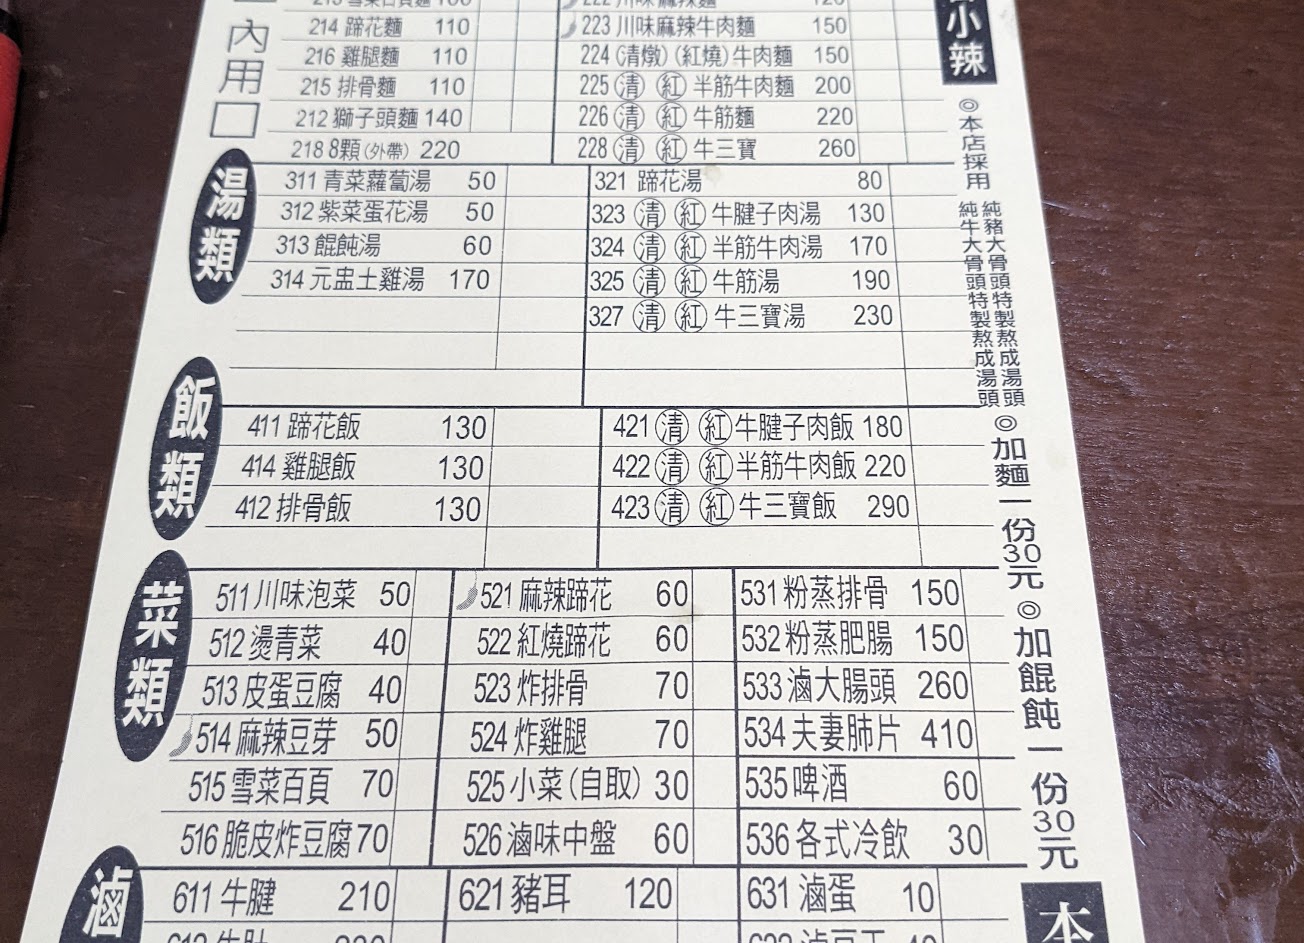 內用□
214 蹄花麵 110
216 雞腿麵 110
215 排骨麵 110
212 獅子頭麵 140
218 8顆(外帶) 220
223 川味麻辣牛肉麵 150
224 (清燉)(紅燒)牛肉麵 150
225 清 紅 半筋牛肉麵 200
226 清 紅 牛筋麵 220
228 清 紅 牛三寶 260
湯類
311 青菜蘿蔔湯 50
312 紫菜蛋花湯 50
313 餛飩湯 60
314 元盅土雞湯 170
321 蹄花湯 80
323 清 紅 牛腱子肉湯 130
324 清 紅 半筋牛肉湯 170
325 清 紅 牛筋湯 190
327 清 紅 牛三寶湯 230
飯類
411 蹄花飯 130
414 雞腿飯 130
412 排骨飯 130
421 清 紅 牛腱子肉飯 180
422 清 紅 半筋牛肉飯 220
423 清 紅 牛三寶飯 290
菜類
511 川味泡菜 50
512 燙青菜 40
513 皮蛋豆腐 40
514 麻辣豆芽 50
515 雪菜百頁 70
516 脆皮炸豆腐 70
521 麻辣蹄花 60
522 紅燒蹄花 60
523 炸排骨 70
524 炸雞腿 70
525 小菜(自取) 30
526 滷味中盤 60
531 粉蒸排骨 150
532 粉蒸肥腸 150
533 滷大腸頭 260
534 夫妻肺片 410
535 啤酒 60
536 各式冷飲 30
滷
611 牛腱 210
621 豬耳 120
631 滷蛋 10
小辣
◎本店採用
純豬大骨頭特製熬成湯頭
純牛大骨頭特製熬成湯頭
◎加麵一份30元
◎加餛飩一份30元
本